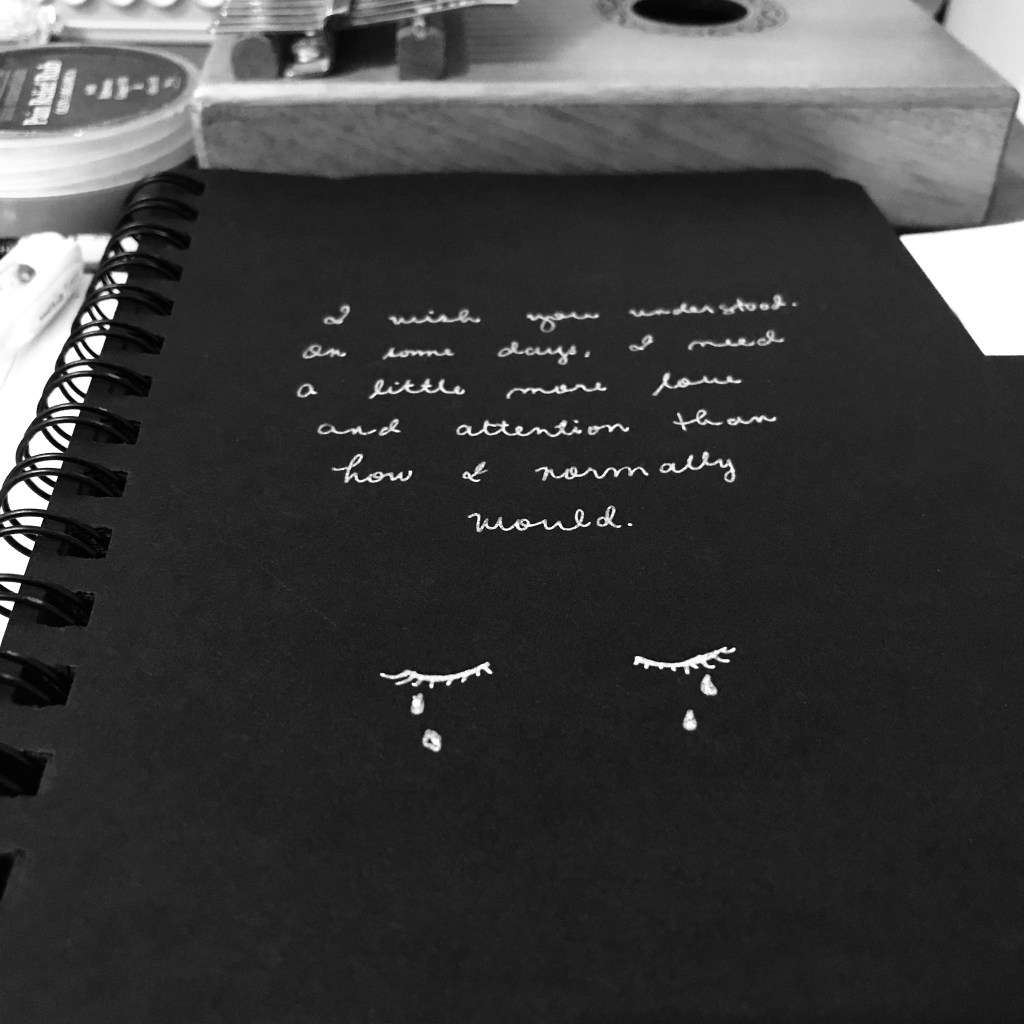 Pain Relief Rub
I wish you understood.
On some days, I need
a little more love
and attention than
how I normally
would.